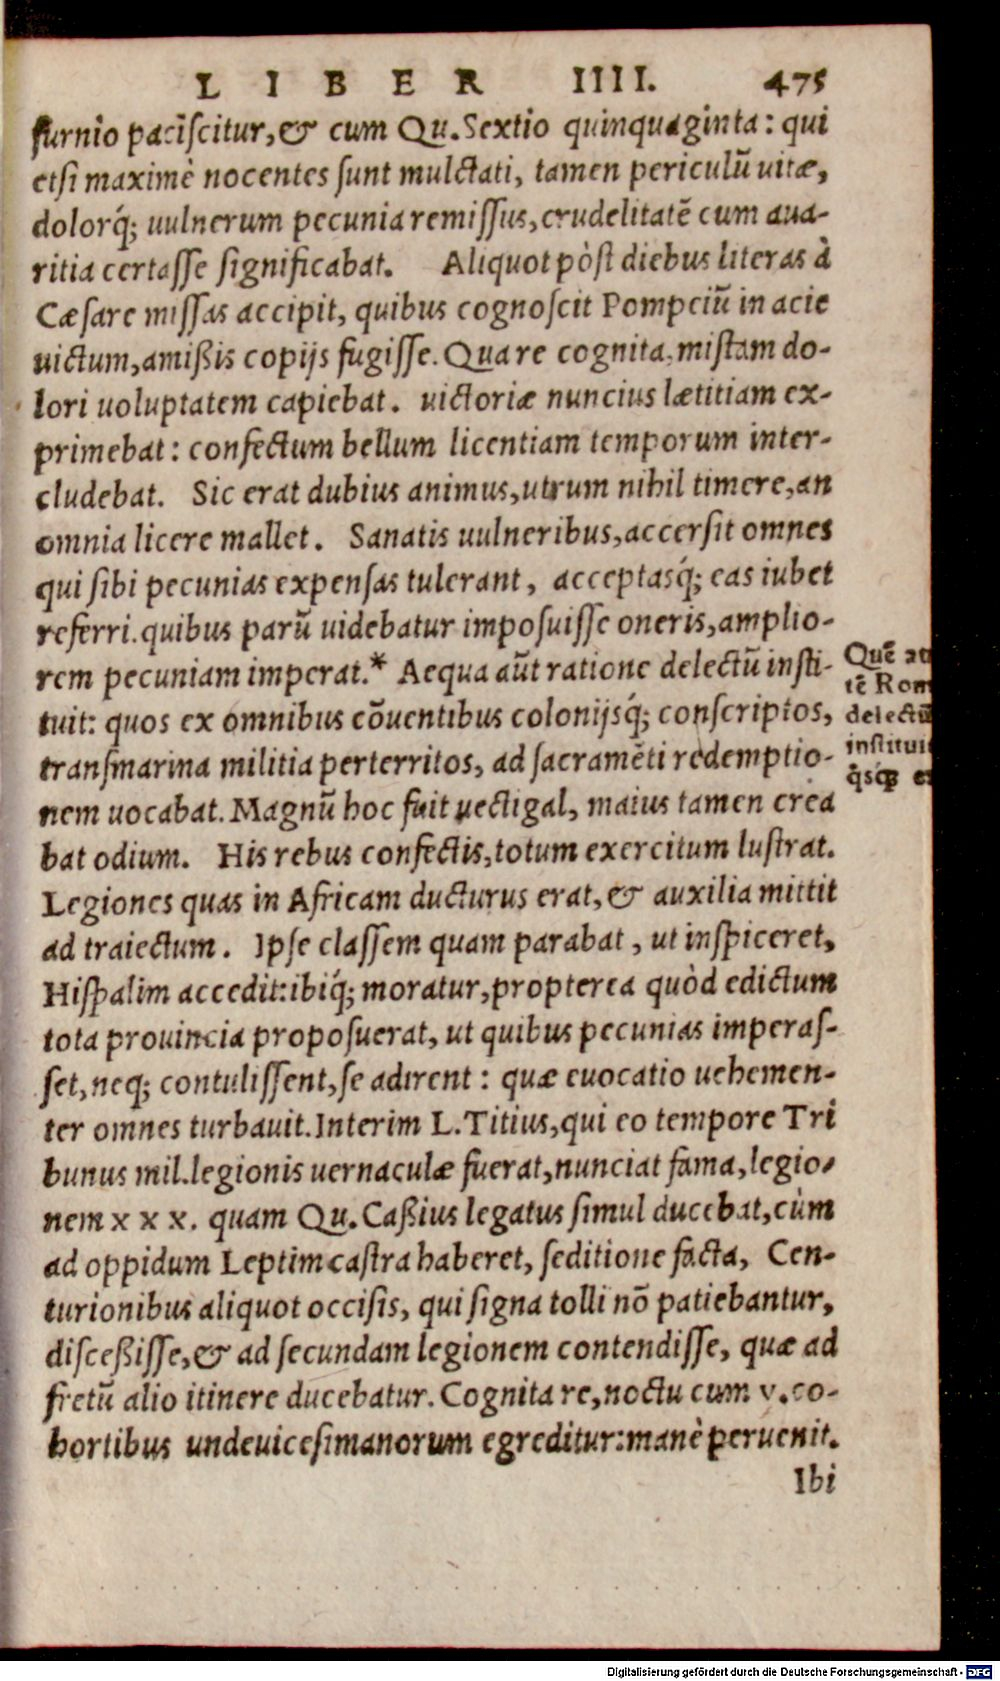 LIBER IIII. 475
furnio paciscitur, & cum Qu. Sextio quinquaginta: qui
etsi maximè nocentes sunt mulctati, tamen periculũ uitæ,
dolorq́; uulnerum pecunia remissus, crudelitatẽ cum aua-
ritia certasse significabat. Aliquot pòst diebus literas à
Cæsare missas accipit, quibus cognoscit Pompeiũ in acie
uictum, amißis copijs fugisse. Qua re cognita, mistam do-
lori uoluptatem capiebat. uictoriæ nuncius lætitiam ex-
primebat: confectum bellum licentiam temporum inter-
cludebat. Sic erat dubius animus, utrum nihil timere, an
omnia licere mallet. Sanatis uulneribus, accersit omnes
qui sibi pecunias expensas tulerant, acceptasq́; eas iubet
referri. quibus parũ uidebatur imposuisse oneris, amplio-
rem pecuniam imperat.* Aequa aũt ratione delectũ insti-
tuit: quos ex omnibus cõuentibus colonijsq́; conscriptos,
transmarina militia perterritos, ad sacramẽti redemptio-
nem uocabat. Magnũ hoc fuit uectigal, maius tamen crea
bat odium. His rebus confectis, totum exercitum lustrat.
Legiones quas in Africam ducturus erat, & auxilia mittit
ad traiectum. Ipse classem quam parabat, ut inspiceret,
Hispalim accedit: ibiq́; moratur, propterea quòd edictum
tota prouincia proposuerat, ut quibus pecunias imperas-
set, neq; contulissent, se adirent: quæ euocatio uehemen-
ter omnes turbauit. Interim L. Titius, qui eo tempore Tri
bunus mil. legionis uernaculæ fuerat, nunciat fama, legio-
nem x x x. quam Qu. Caßius legatus simul ducebat, cùm
ad oppidum Leptim castra haberet, seditione facta, Cen-
turionibus aliquot occisis, qui signa tolli nõ patiebantur,
disceßisse, & ad secundam legionem contendisse, quæ ad
fretũ alio itinere ducebatur. Cognita re, noctu cum v. co-
hortibus undeuicesimanorum egreditur: manè peruenit.
Ibi
Quẽ
tẽ Rom
delectũ
instituit
Digitalisierung gefördert durch die Deutsche Forschungsgemeinschaft - DFG